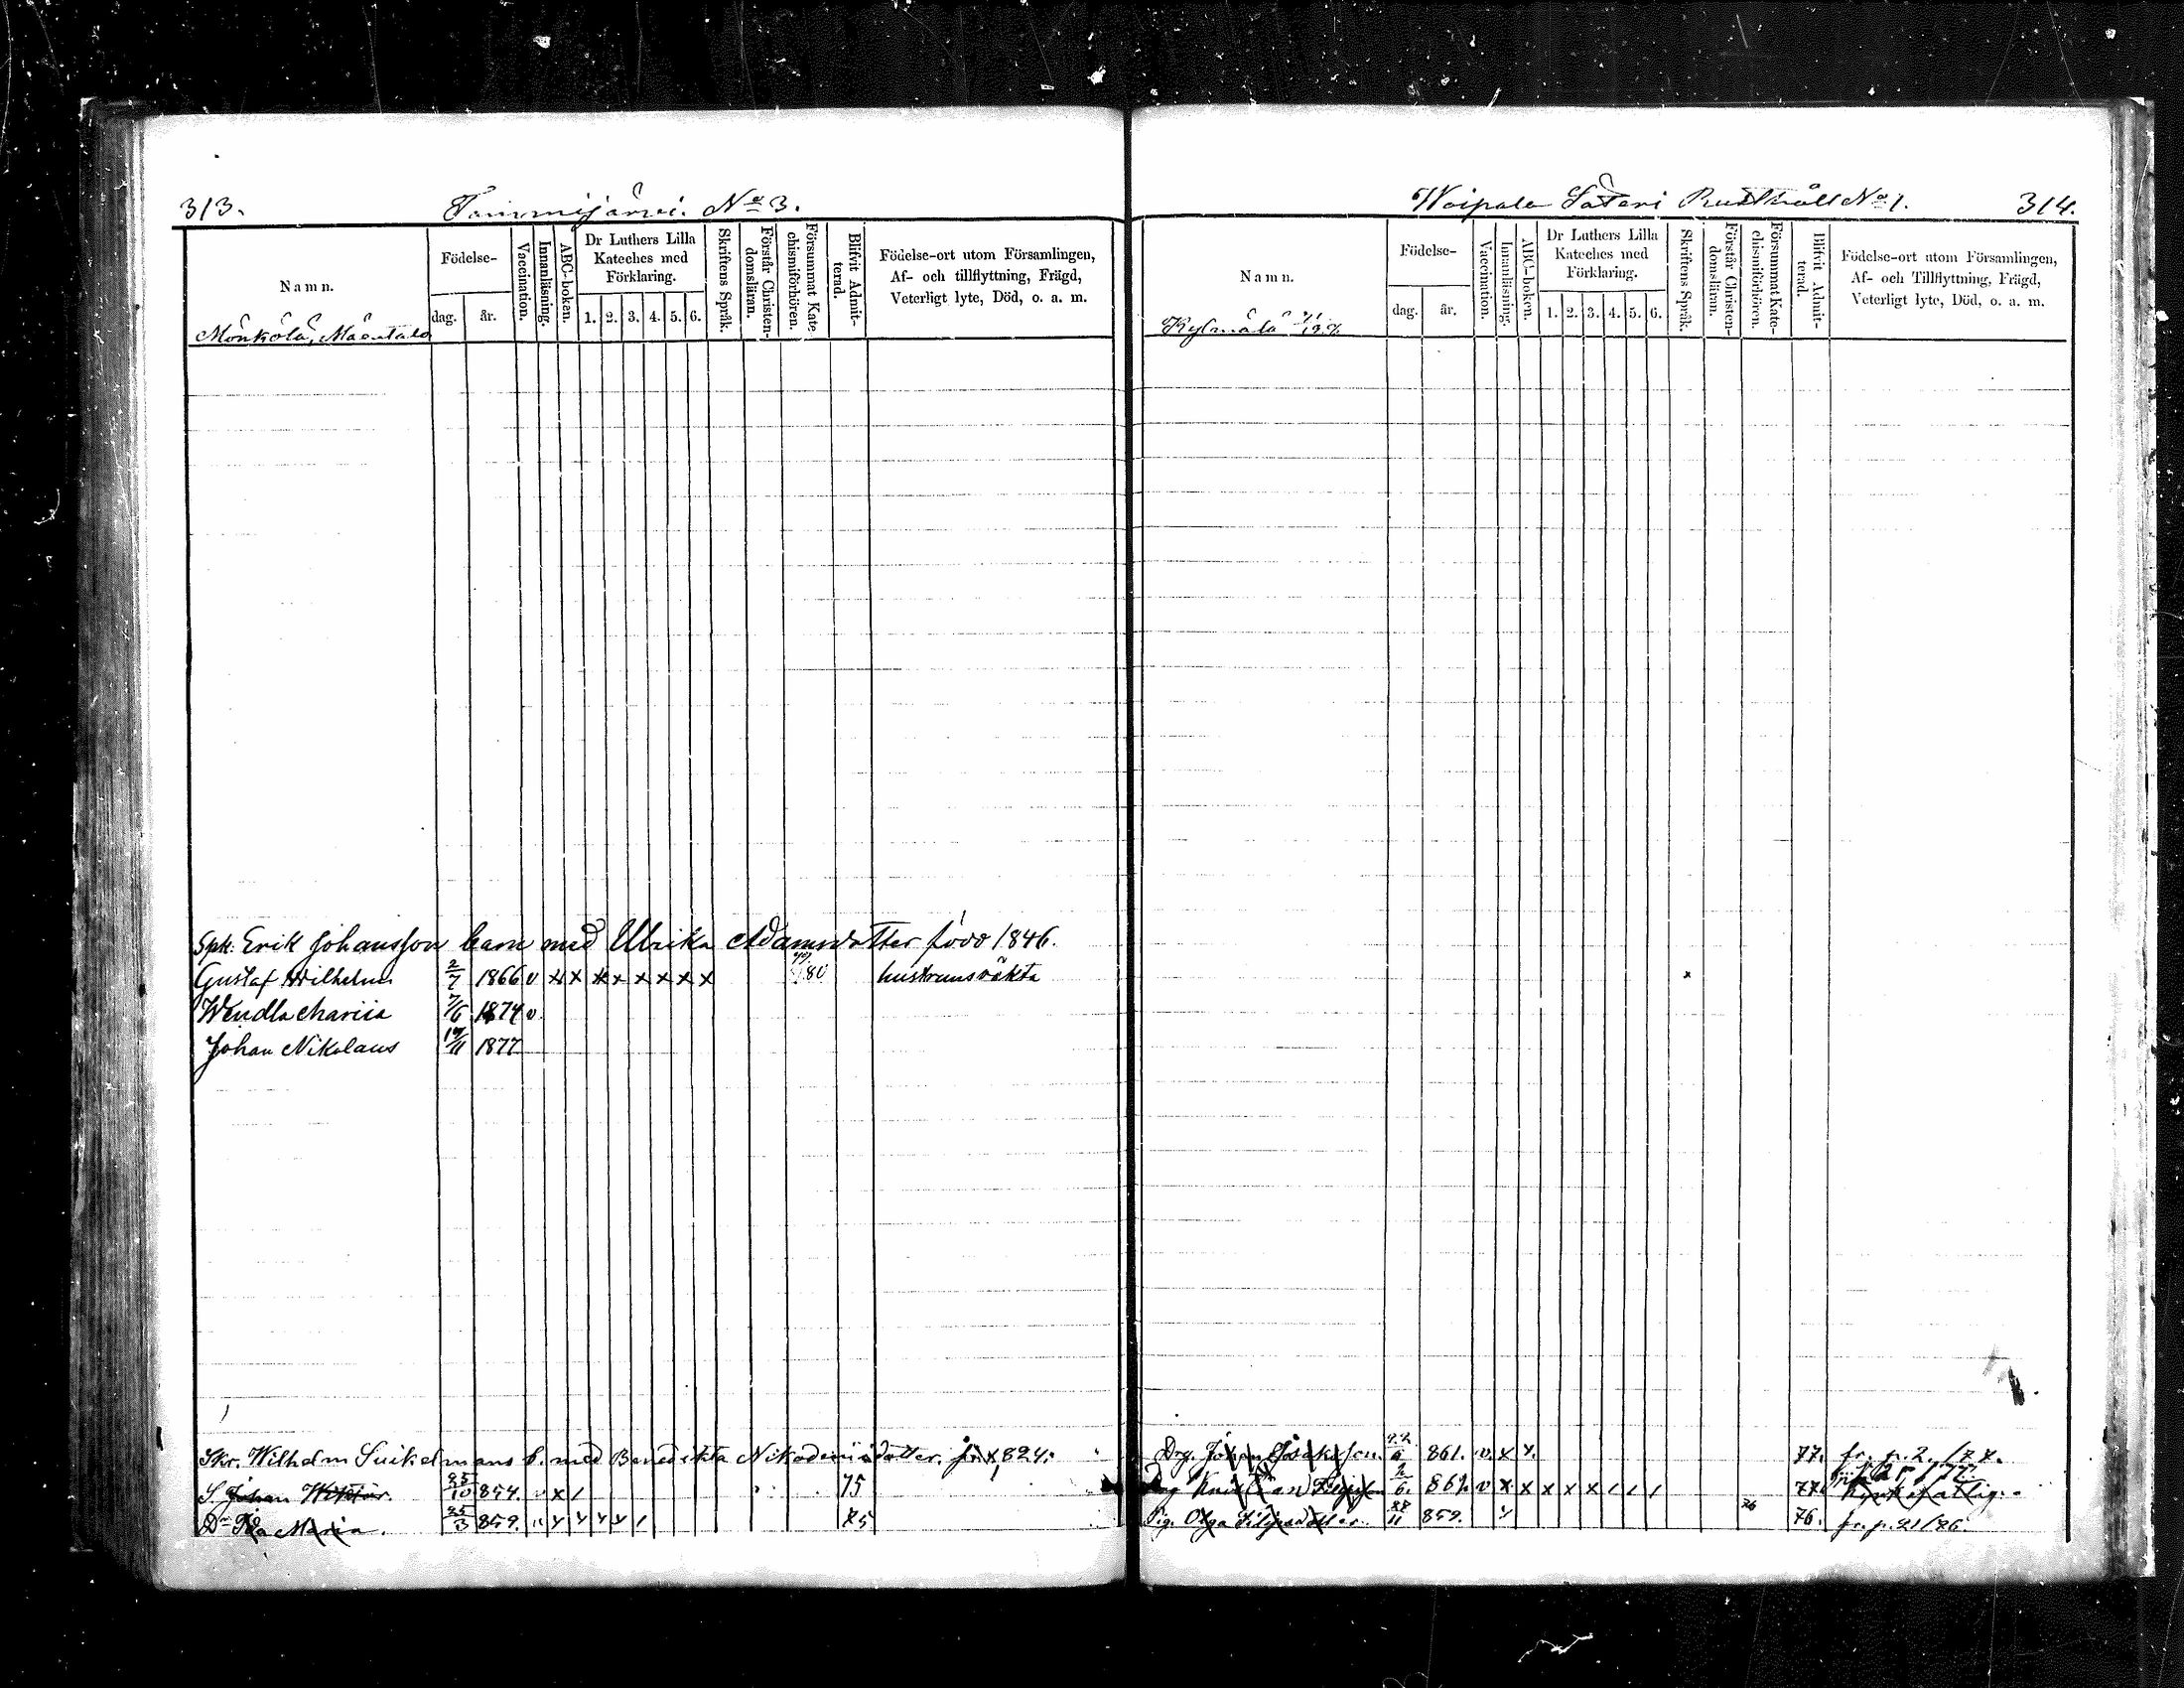 313.
Tammijärvi. No 3.
Namn.
Födelse-
dag.
år.
Vaccination.
Innanläsning.
ABC-boken.
Dr Luthers Lilla
Kateches med
Förklaring.
1. 2. 3. 4. 5. 6.
Skriftens Språk.
Förstår Christen-
domsläran.
Försummat Kate-
chismiförhören.
Blifvit Admit-
terad.
Födelse-ort utom Församlingen,
Af- och tillflyttning, Frägd,
Veterligt lyte, Död, o. a. m.
Mönkölä, Mäentalo
Spk: Erik Johansson barn med Ulrika Adamsdotter född 1846.
Gustaf Wilhelm 2/7 1866 v x x x x x x x x 80 hustruns oäkta
Wendla Maria 7/6 1874 v.
Johan Nikolaus 19/11 1877
Skr. Wilhelm Suikelmans b. med Benedikta Nikodemidotter. 1824.
S. Johan Wiktor. 25/10 854. v x / 75
Dr Ida Maria. 25/3 859. 75
Woipala Säteri Rusthåll No 1.
314.
Namn.
Födelse-
dag.
år.
Vaccination.
Innanläsning.
ABC-boken.
Dr Luthers Lilla
Kateches med
Förklaring.
1. 2. 3. 4. 5. 6.
Skriftens Språk.
Förstår Christen-
domsläran.
Försummat Kate-
chismiförhören.
Blifvit Admit-
terad.
Födelse-ort utom Församlingen,
Af- och Tillflyttning, Frägd,
Veterligt lyte, Död, o. a. m.
Kylmälä
Drg. Johan Isaksson. 861. v. x x. 77. fr. p. 2./77.
Drg 6. 861. v x x x x x / / / 77.
Pig. Olga 28/11 859. 76. fr. p. 21/76.